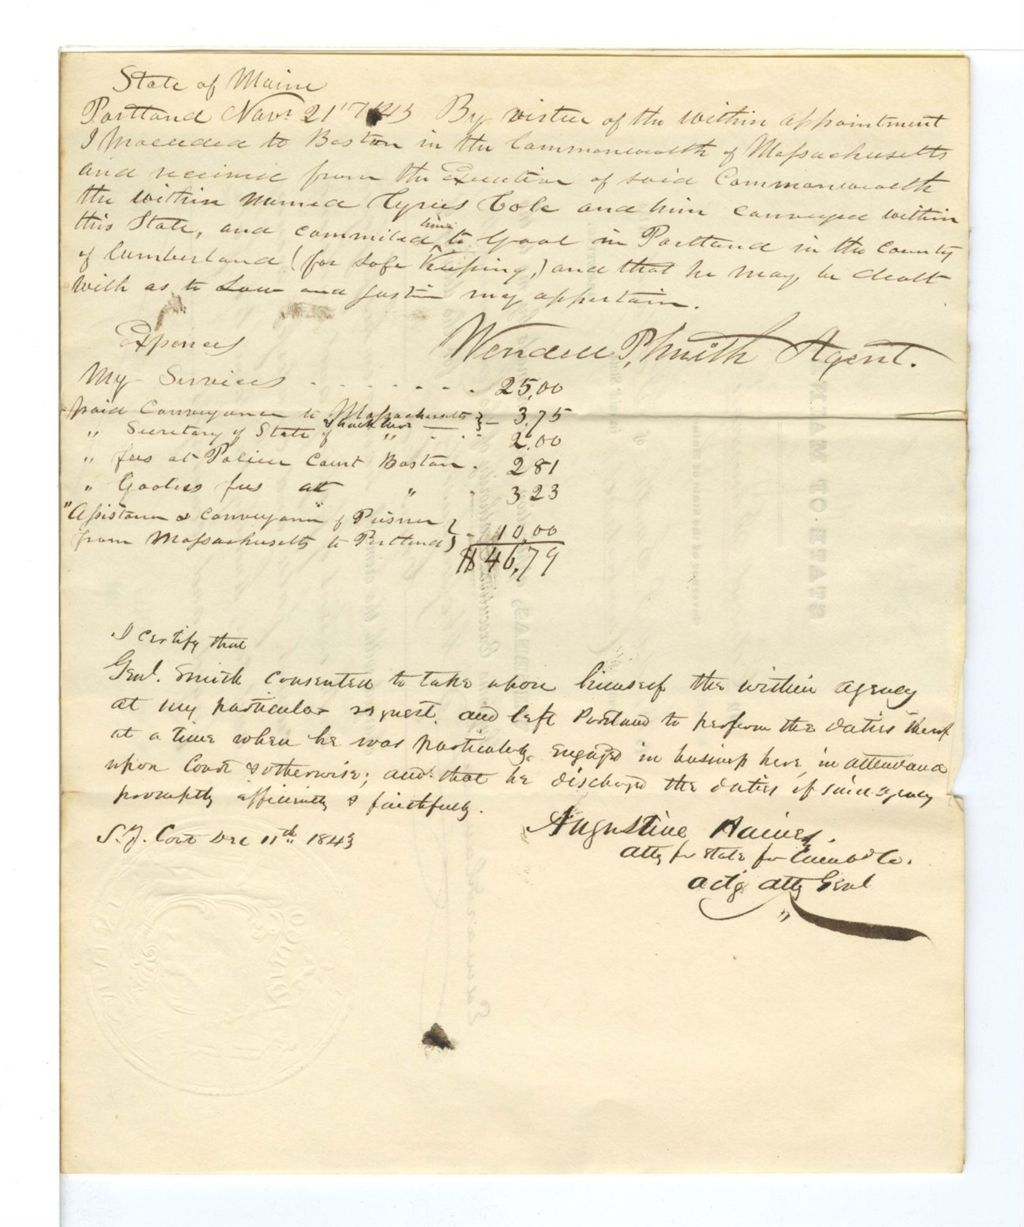 State of Maine
Portland Novr 21st 1843 By virtue of the within appointment
I proceeded to Boston in the Commonwealth of Massachusetts
and received from the Executive of said Commonwealth
the within named Cyrus Cole and him conveyed within
this State, and committed him to Goal in Portland in the County
of Cumberland (for safe Keeping,) and that he may be dealt
with as to Law and Justice may appertain.
Expences Wendell P. Smith Agent.
My Services - - - - - - - 25,00
paid Conveyance to Massachusetts } - 3,75
" Secretary of State of " - - - 2,00
" fees at Police Court Boston - 2 81
" Goalers fees at " " 3 23
"Assistance & Conveyance of Prisoner }
from Massachusetts to Portland } - 10,00
$ 46,79
I certify that
Genl. Smith consented to take upon himself the within agency
at my particular request, and left Portland to perform the duties thereof
at a time when he was particularly engaged in business here, in attendance
upon Court & otherwise; and that he discharged the duties of said agency
promptly efficiently & faithfully.
S. J. Court Dec 11th 1843
Augustine Haines.
atty for State for Cumbd Co.
actg atty Genl
STATE OF MAINE